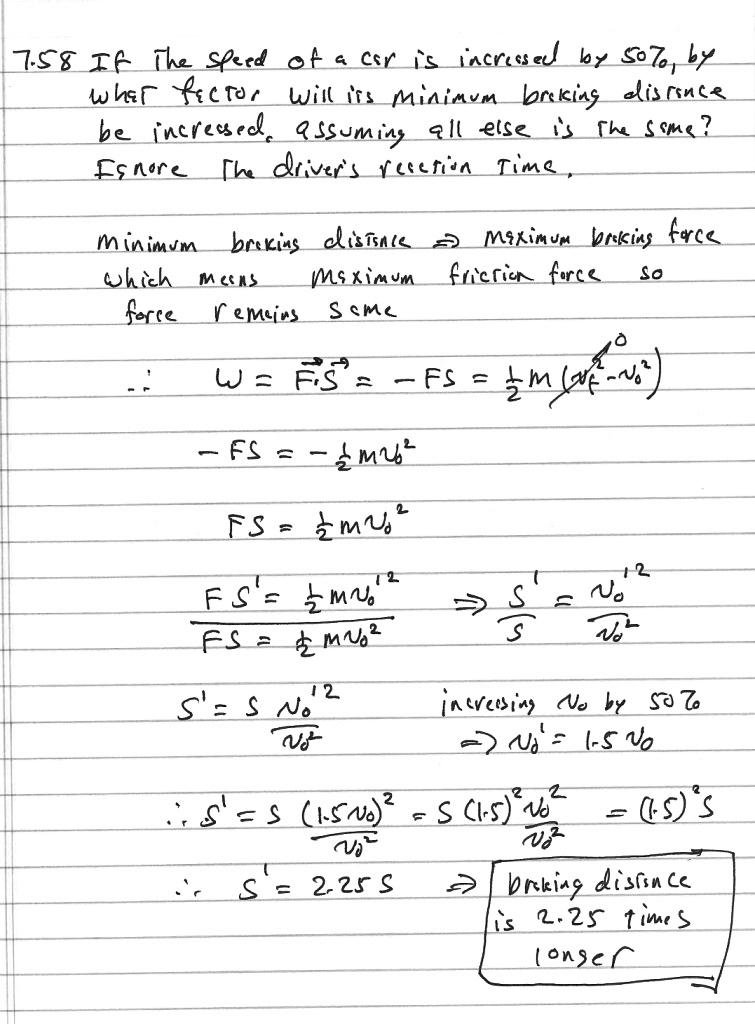 7.58 If The speed of a car is increased by 50%, by
what factor will its minimum braking distance
be increased, assuming all else is the same?
Ignore The driver's reaction Time.
minimum braking distance ⇒ maximum braking force
which means maximum friction force so
force remains same
∴ W = F⃗·S⃗ = -FS = ½ m (v_f² - v₀²) 0
-FS = -½ m v₀²
FS = ½ m v₀²
FS' = ½ m v₀'² ⇒ S' = v₀'²
FS = ½ m v₀² S v₀²
S' = S v₀'² increasing v₀ by 50%
v₀² ⇒ v₀' = 1.5 v₀
∴ S' = S (1.5 v₀)² = S (1.5)² v₀² = (1.5)² S
v₀² v₀²
∴ S' = 2.25 S ⇒ braking distance
is 2.25 times
longer